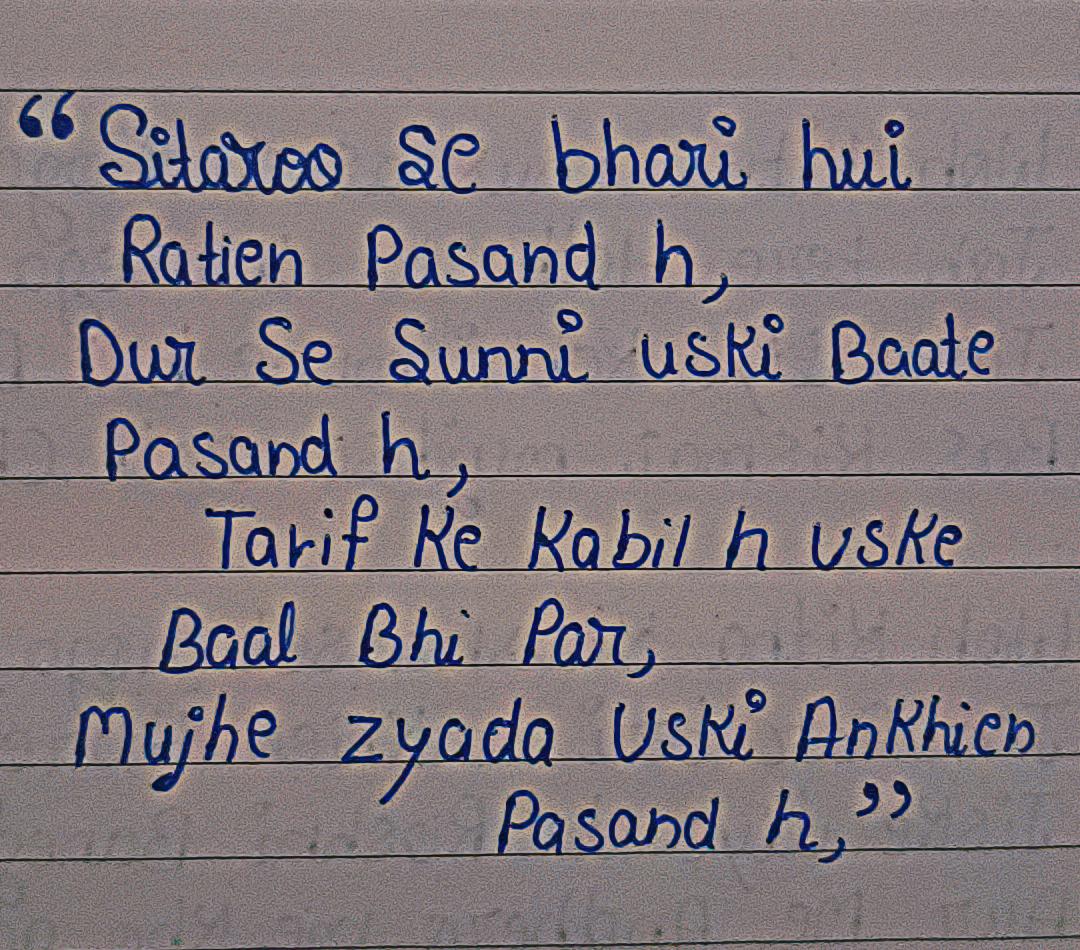 “Sitaroo se bhari hui
Ratien Pasand h,
Dur Se Sunni uski Baate
Pasand h,
Tarif Ke Kabil h uske
Baal Bhi Par,
Mujhe zyada Uski Ankhien
Pasand h,”